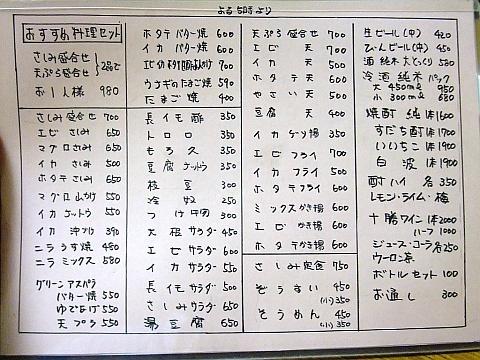 よる5時より
おすすめ料理セット
さしみ盛合せ
天ぷら盛合せ
2品で
お一人様 980
さしみ盛合せ 700
エビさしみ 650
マグロさしみ 650
イカさしみ 500
ホタテさしみ 650
マグロ山かけ 550
イカナットウ 550
イカ沖づけ 390
ニラうす焼 480
ニラミックス 580
グリーンアスパラ
バター焼 550
ゆであげ 550
天プラ 550
ホタテバター焼 600
イカバター焼 600
700
ウサギのたまご焼 590
たまご焼 400
長イモ酢 350
トロロ 350
もろ久 350
豆腐ナットウ 350
枝豆 300
冷奴 250
つけ物 300
大根サラダ 450
エビサラダ 600
イカサラダ 550
長イモサラダ 650
さしみサラダ 650
湯豆腐 650
天ぷら盛合せ 700
エビ天 700
イカ天 500
ホタテ天 600
やさい天 500
豆腐天 400
イカゲソ揚 350
エビフライ 700
イカフライ 500
ホタテフライ 600
ミックスかき揚 600
エビかき揚 600
ホタテかき揚 600
さしみ定食 750
ぞうすい 450
(小) 350
そうめん 450
(小) 350
生ビール(中) 420
びんビール(中) 450
酒 純米大とっくり 580
冷酒 純米パック
大 450ml 950
小 300ml 680
焼酎 純 1本1600
すだち酎 1本1700
いいちこ 1本1900
白波 1本1900
酎ハイ 各350
レモン・ライム・梅
十勝ワイン 1本2000
ハーフ 1000
ジュース・コーラ 各250
ウーロン茶
ボトルセット 100
お通し 300